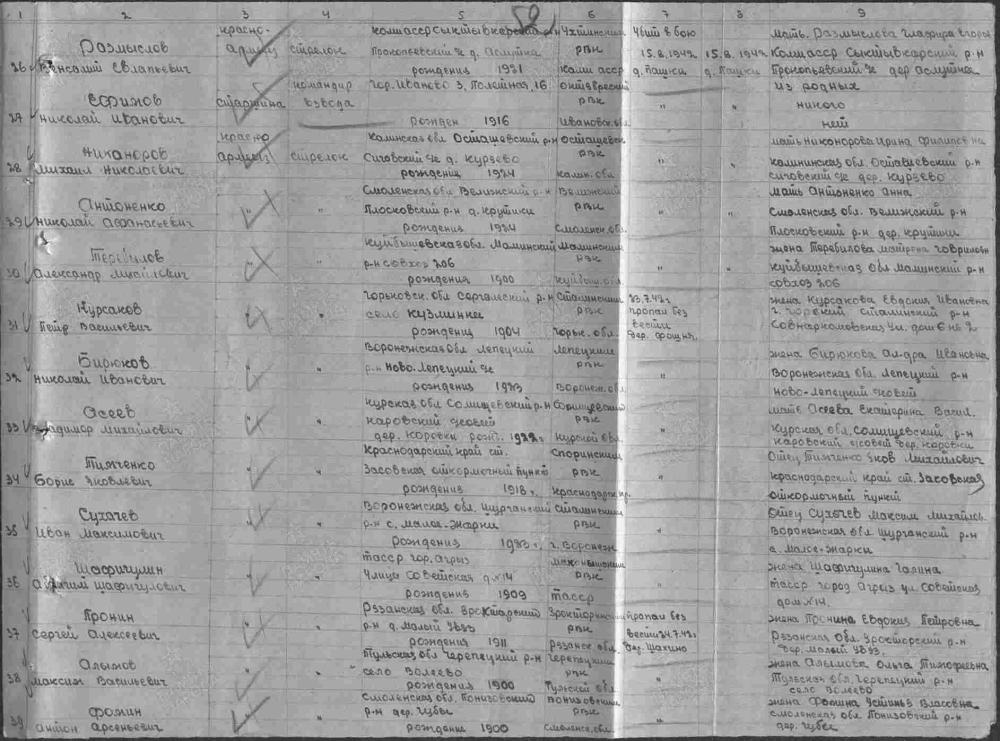 1 2 3 4 5 6 7 8 9
59
26 Размыслов Венсалий Евлапьевич
красно-армеец стрелок
комиассрсыктывкарский р-н
Прокопьевский с/с д. Аслупка
рождения 1921
Ухтинский РВК Коми асср
Убит в бою 15.8.1942 д. Пашки
15.8.1942 д. Пашки
мать Размыслова Глафира
Комиасср Сыктывкарский р-н
Прокопьевский с/с дер Аслупка
27 Ефимов Николай Иванович
старшина командир взвода
гор. Иваново 3, Полешная, 16
рожден 1916
октябрьский РВК Ивановск. обл.
" "
из родных
никого
нет
28 Никаноров Михаил Николаевич
красно армеец стрелок
Калинская обл Осташевский р-н
Сиговский с/с д. Курзево
рождения 1924
Осташевск РВК Калин. обл.
" "
мать Никонорова Ирина Филипповна
калининская обл. Осташевский р-н
сиговский с/с дер. Курзево
29 Антоненко Николай Афанасьевич
" "
Смоленская обл Велижский р-н
Плосковский р-н д. Крутики
рождения 1924
Велижский РВК Смоленск. об.
" "
мать Антоненко Анна
Смоленская обл. Велижский р-н
Плосковский р-н дер. Крутики
30 Теребилов Александр Михайлович
" "
Куйбышевская обл. Малинский
р-н совхоз 206
рождения 1900
Малинский РВК Куйбыш. обл.
" "
жена Теребилова матрена Говриловн
куйбышевская обл Малинский р-н
совхоз 206
31 Курсаков Петр Васильевич
" "
Горьковск. обл Сергачский р-н
село Кузминки
рождения 1904
Сталинский РВК Горьк. обл.
23.7.42 г. пропал без вести
жена Курсакова Евдокия Ивановна
г. Горький сталинский р-н
Совнаркомовская ул. дом 6 кв 2
32 Бирюков Николай Иванович
" "
Воронежская обл Лепецкий
р-н Ново-Лепецкий с/с
рождения 1923
Лепецкий РВК Воронеж. обл.
"
жена Бирюкова Ал-дра Ивановна
Воронежская обл. Лепецкий р-н
Ново-Лепецкий с/совет
33 Асеев Владимир Михайлович
" "
Курская обл Солнцевский р-н
каровский с/совет
дер. Коровки рожд. 1922 г.
Солнцевский РВК Курской обл.
"
мать Асеева Екатерина Васил.
Курская обл. Солнцевский р-н
каровский с/совет дер. Коровки
34 Тимченко Борис Яковлевич
" "
Краснодарский край ст.
Засовская откормочный пункт
рождения 1918 г.
Споринский РВК Краснодарск. кр.
"
Отец Тимченко Яков Михайлович
краснодарский край ст. Засовская
откормочный пункт
35 Сухачев Иван Максимович
" "
Воронежская обл. Щурганский
р-н с. малое-жарки
рождения 1923 г.
Сталинский РВК г. Воронеж
"
Отец Сухачев Максим Михайлов.
Воронежская обл Щурганский р-н
с. Малое-жарки
36 Шафигулин Шафигулович
" "
Тасср гор. Агрыз
улица Советская д. № 14
рождения 1909
РВК Тасср
"
жена Шафигулина Галина
Тасср город Агрыз ул. Советская
дом № 14.
37 Пронин Сергей Алексеевич
" "
Рязанская обл. Эроктарский
р-н д. Малый Увяз
рождения 1911
Эроктаринский РВК Рязанск об.
Пропал без вести 24.7.42 г. дер. Шахино
жена Пронина Евдокия Петровна
Рязанская обл. Урокторский р-н
дер. Малый Увяз.
38 Алымов Максим Васильевич
" "
Тульская обл Черепецкий р-н
село Волеево
рождения 1900
Черепецкий РВК Тульской обл
"
жена Алымова Ольга Тимофеевна
Тульская обл. Черепецкий р-н
село Волеево
39 Фомин Антон Арсеньевич
" "
Смоленская обл. Понизовский
р-н дер. Чубы
рождения 1900
Понизовский РВК Смоленск. обл.
"
жена Фомина Устинья Власовна
смоленская обл Понизовский р-н
дер. Чубы